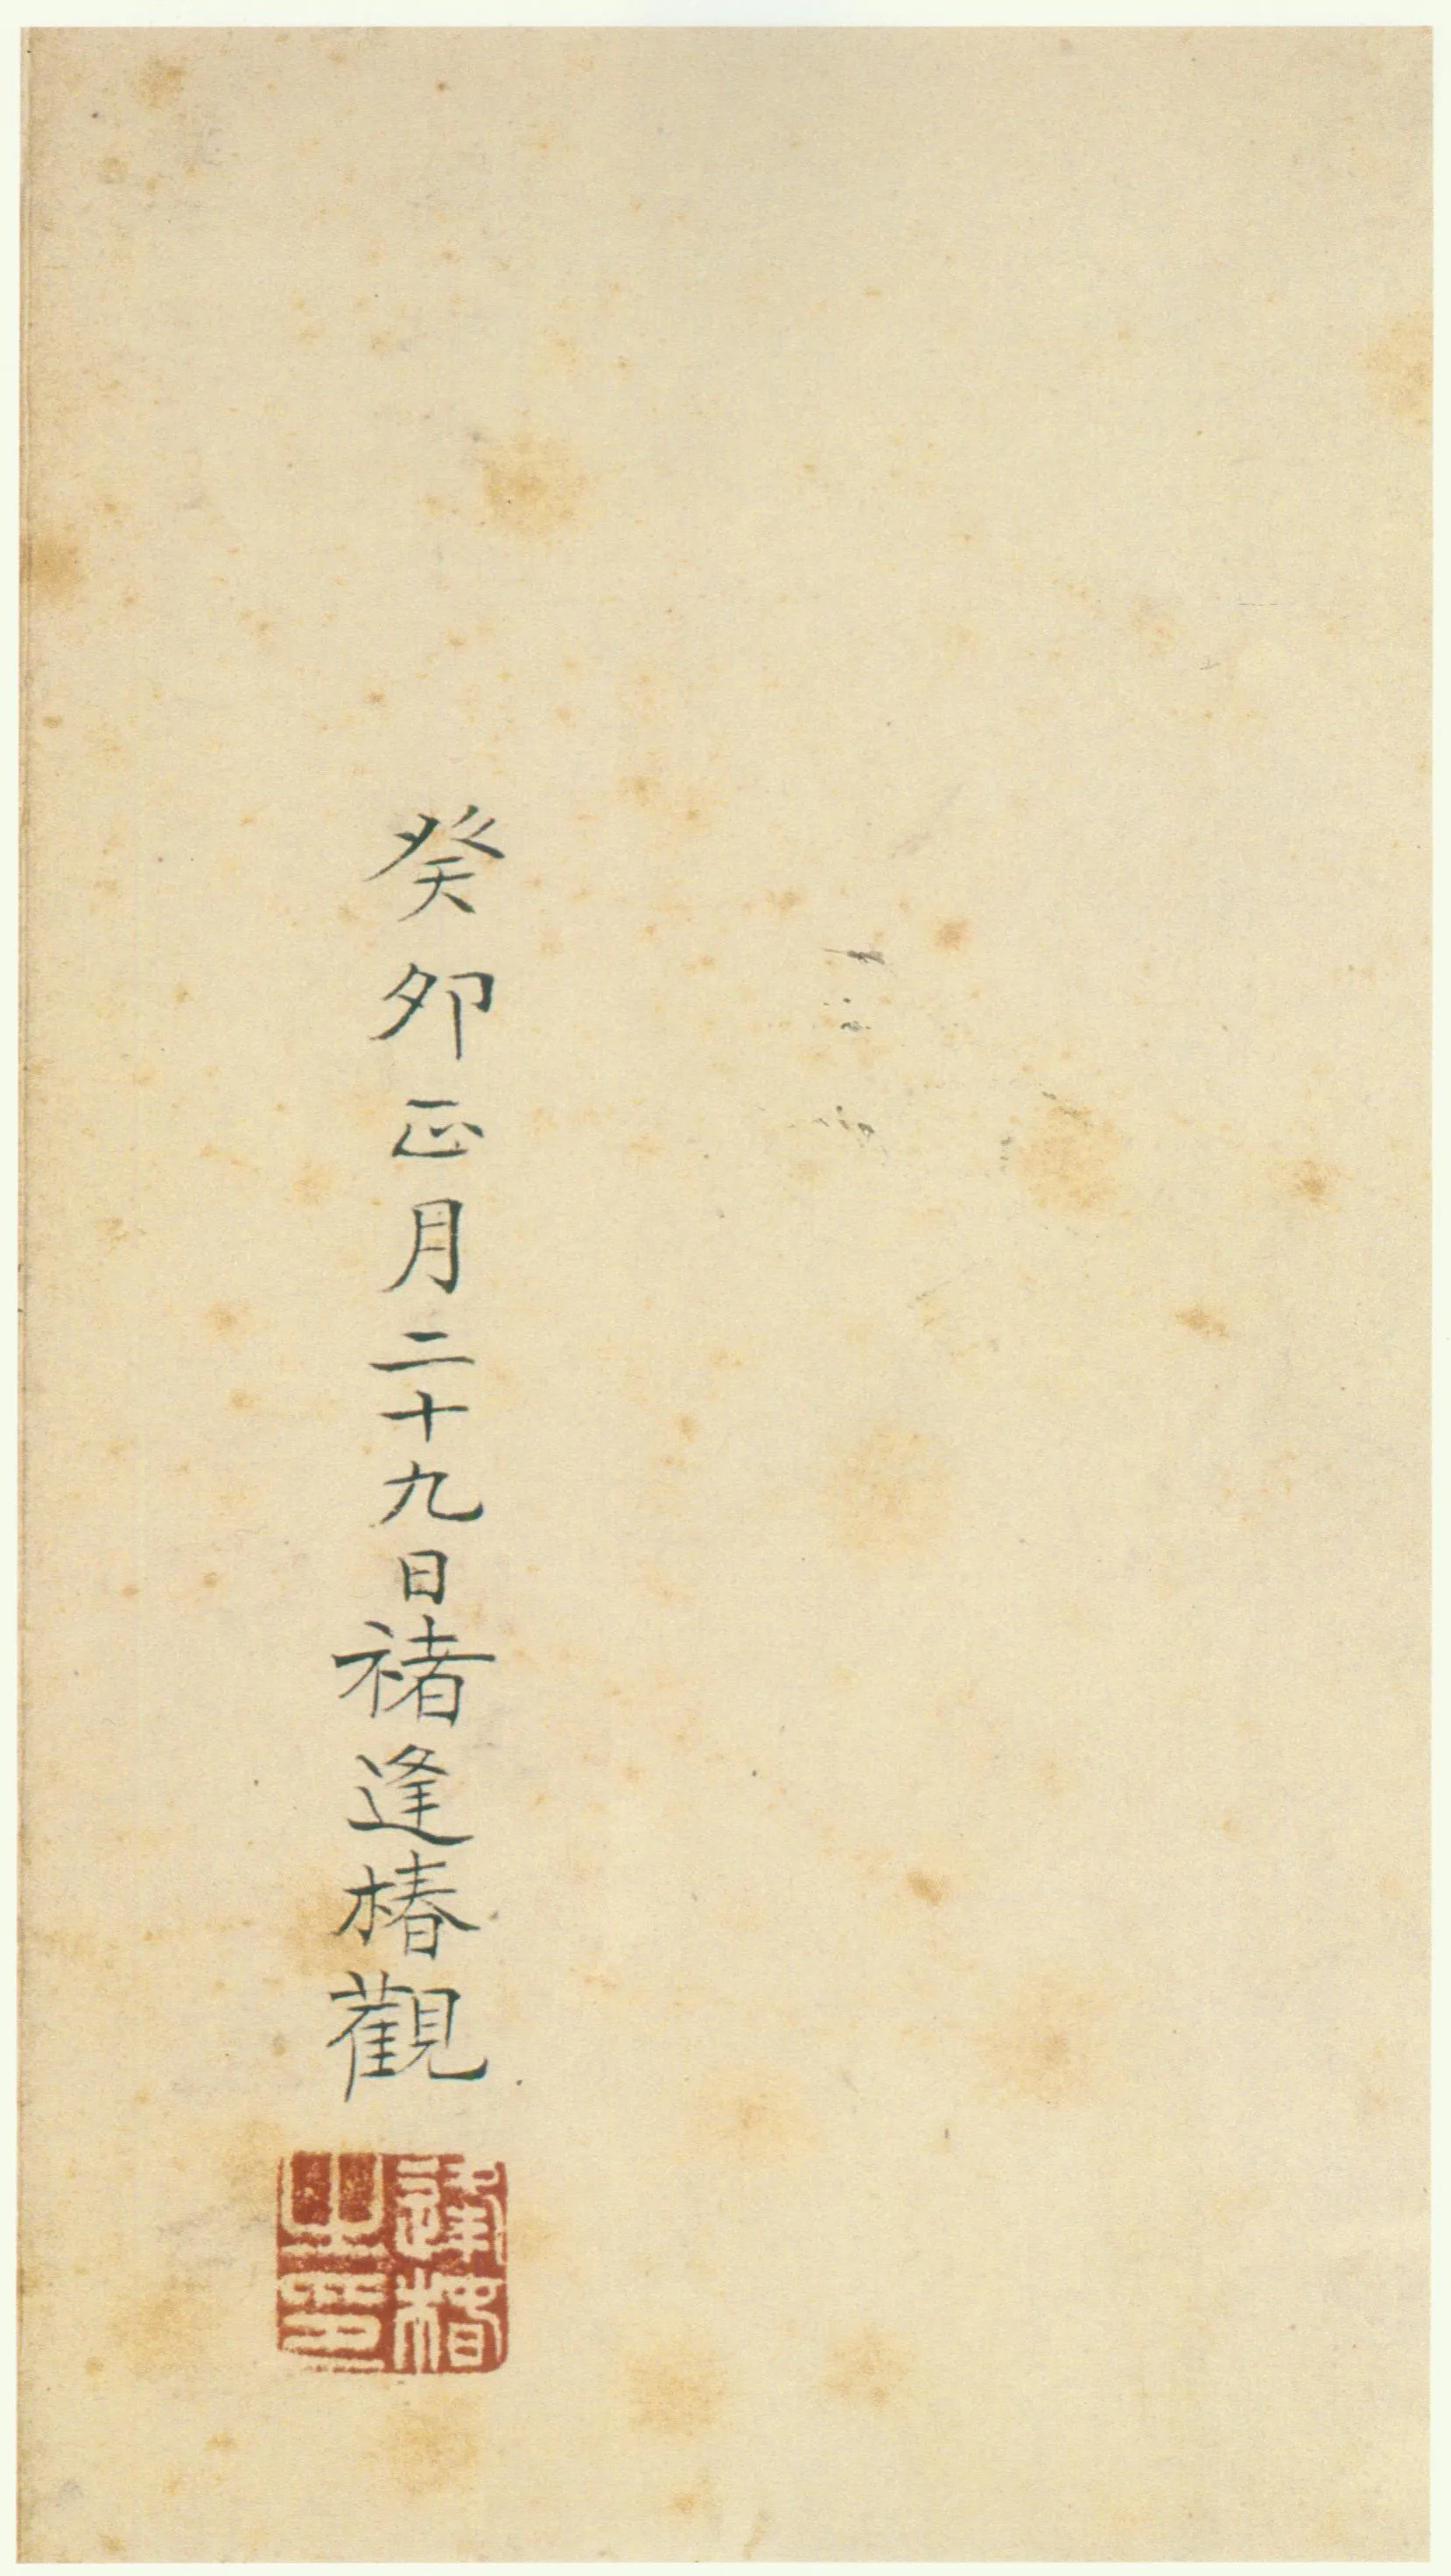 癸卯正月二十九日褚逢椿觀
逢椿之印